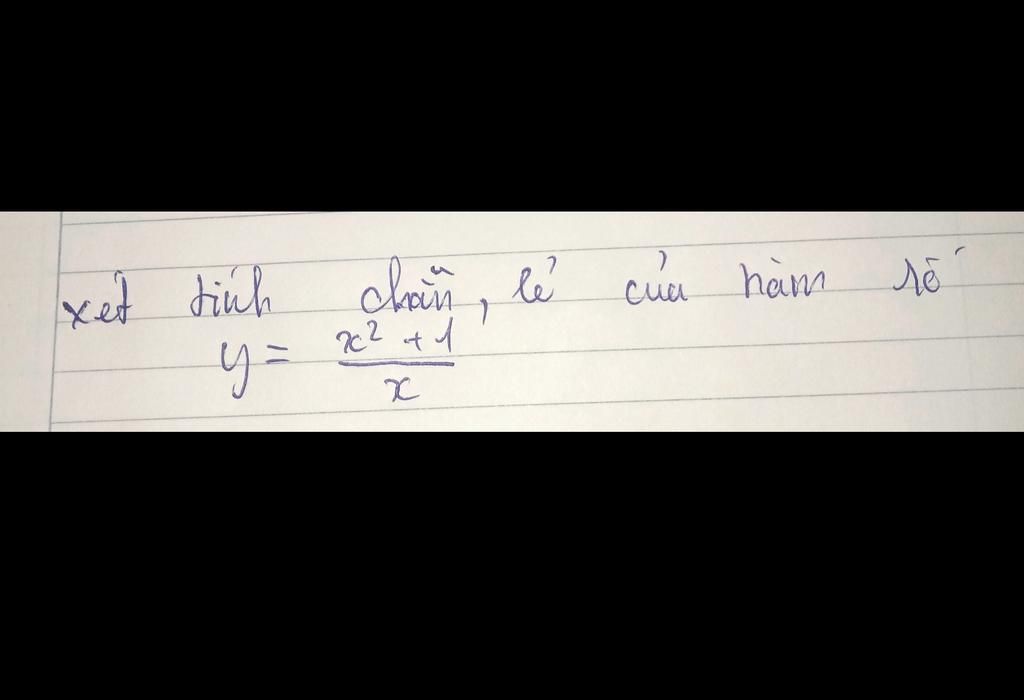 xét tính chẵn, lẻ của hàm số
y = \frac{x^2 + 1}{x}